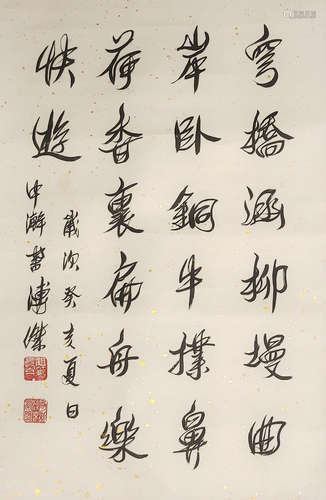 穹橋涵柳堤曲
岸臥銅牛撲鼻
荷香裏扁舟樂
快遊
歲次癸亥夏日
中澣 溥傑